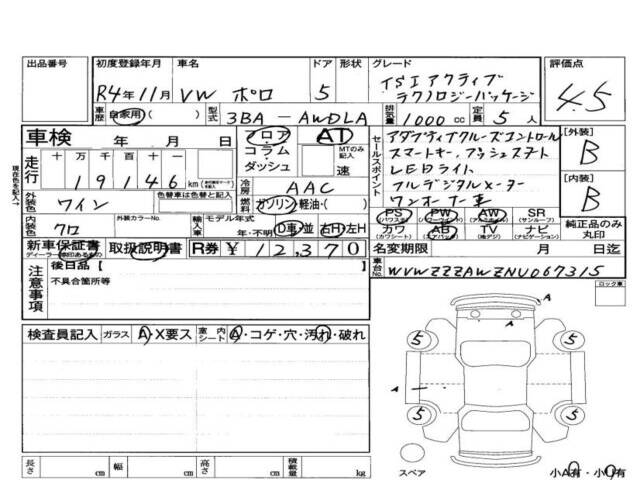 出品番号 初度登録年月 車名 ドア 形状 グレード 評価点
R4年11月 VW ポロ 5 TSIアクティブ
テクノロジーパッケージ 4.5
車歴 自家用 ( ) 型式 3BA - AWDLA 排気量 1000 cc 定員 5人
車検 年 月 日 フロア AT
コラム MTのみ記入
ダッシュ 速
走行 十 万 千 百 十 一
19146 km
現在色を記入→
外装色 ワイン 色替車は元色を記入
内装色 クロ 外装カラーNo.
冷房 AAC
燃料 ガソリン・軽油・( )
輸入車 モデル年式 年・不明 D車・並 右H・左H
セールスポイント
アダプティブクルーズコントロール
スマートキー、プッシュスタート
LEDライト
フルデジタルメーター
ワンオーナー車
[外装] B
[内装] B
PS PW AW SR
(パワステ) (サンルーフ)
カワ AB TV ナビ
(カワシート) (エアバッグ) (地デジ) (ナビゲーション)
純正品のみ丸印
新車保証書 取扱説明書 R券 ¥ 12,370
名変期限 月 日迄
車台No. WVWZZZAWZNU067315
注意事項
後日品【 】
不具合箇所等
ロック車
検査員記入 ガラス A・X要ス 室内シート A・コゲ・穴・汚れ・破れ
A
5 5
A
5 5
スペア 小A有・小U有
長さ cm 幅 cm 高さ cm 積載量 kg